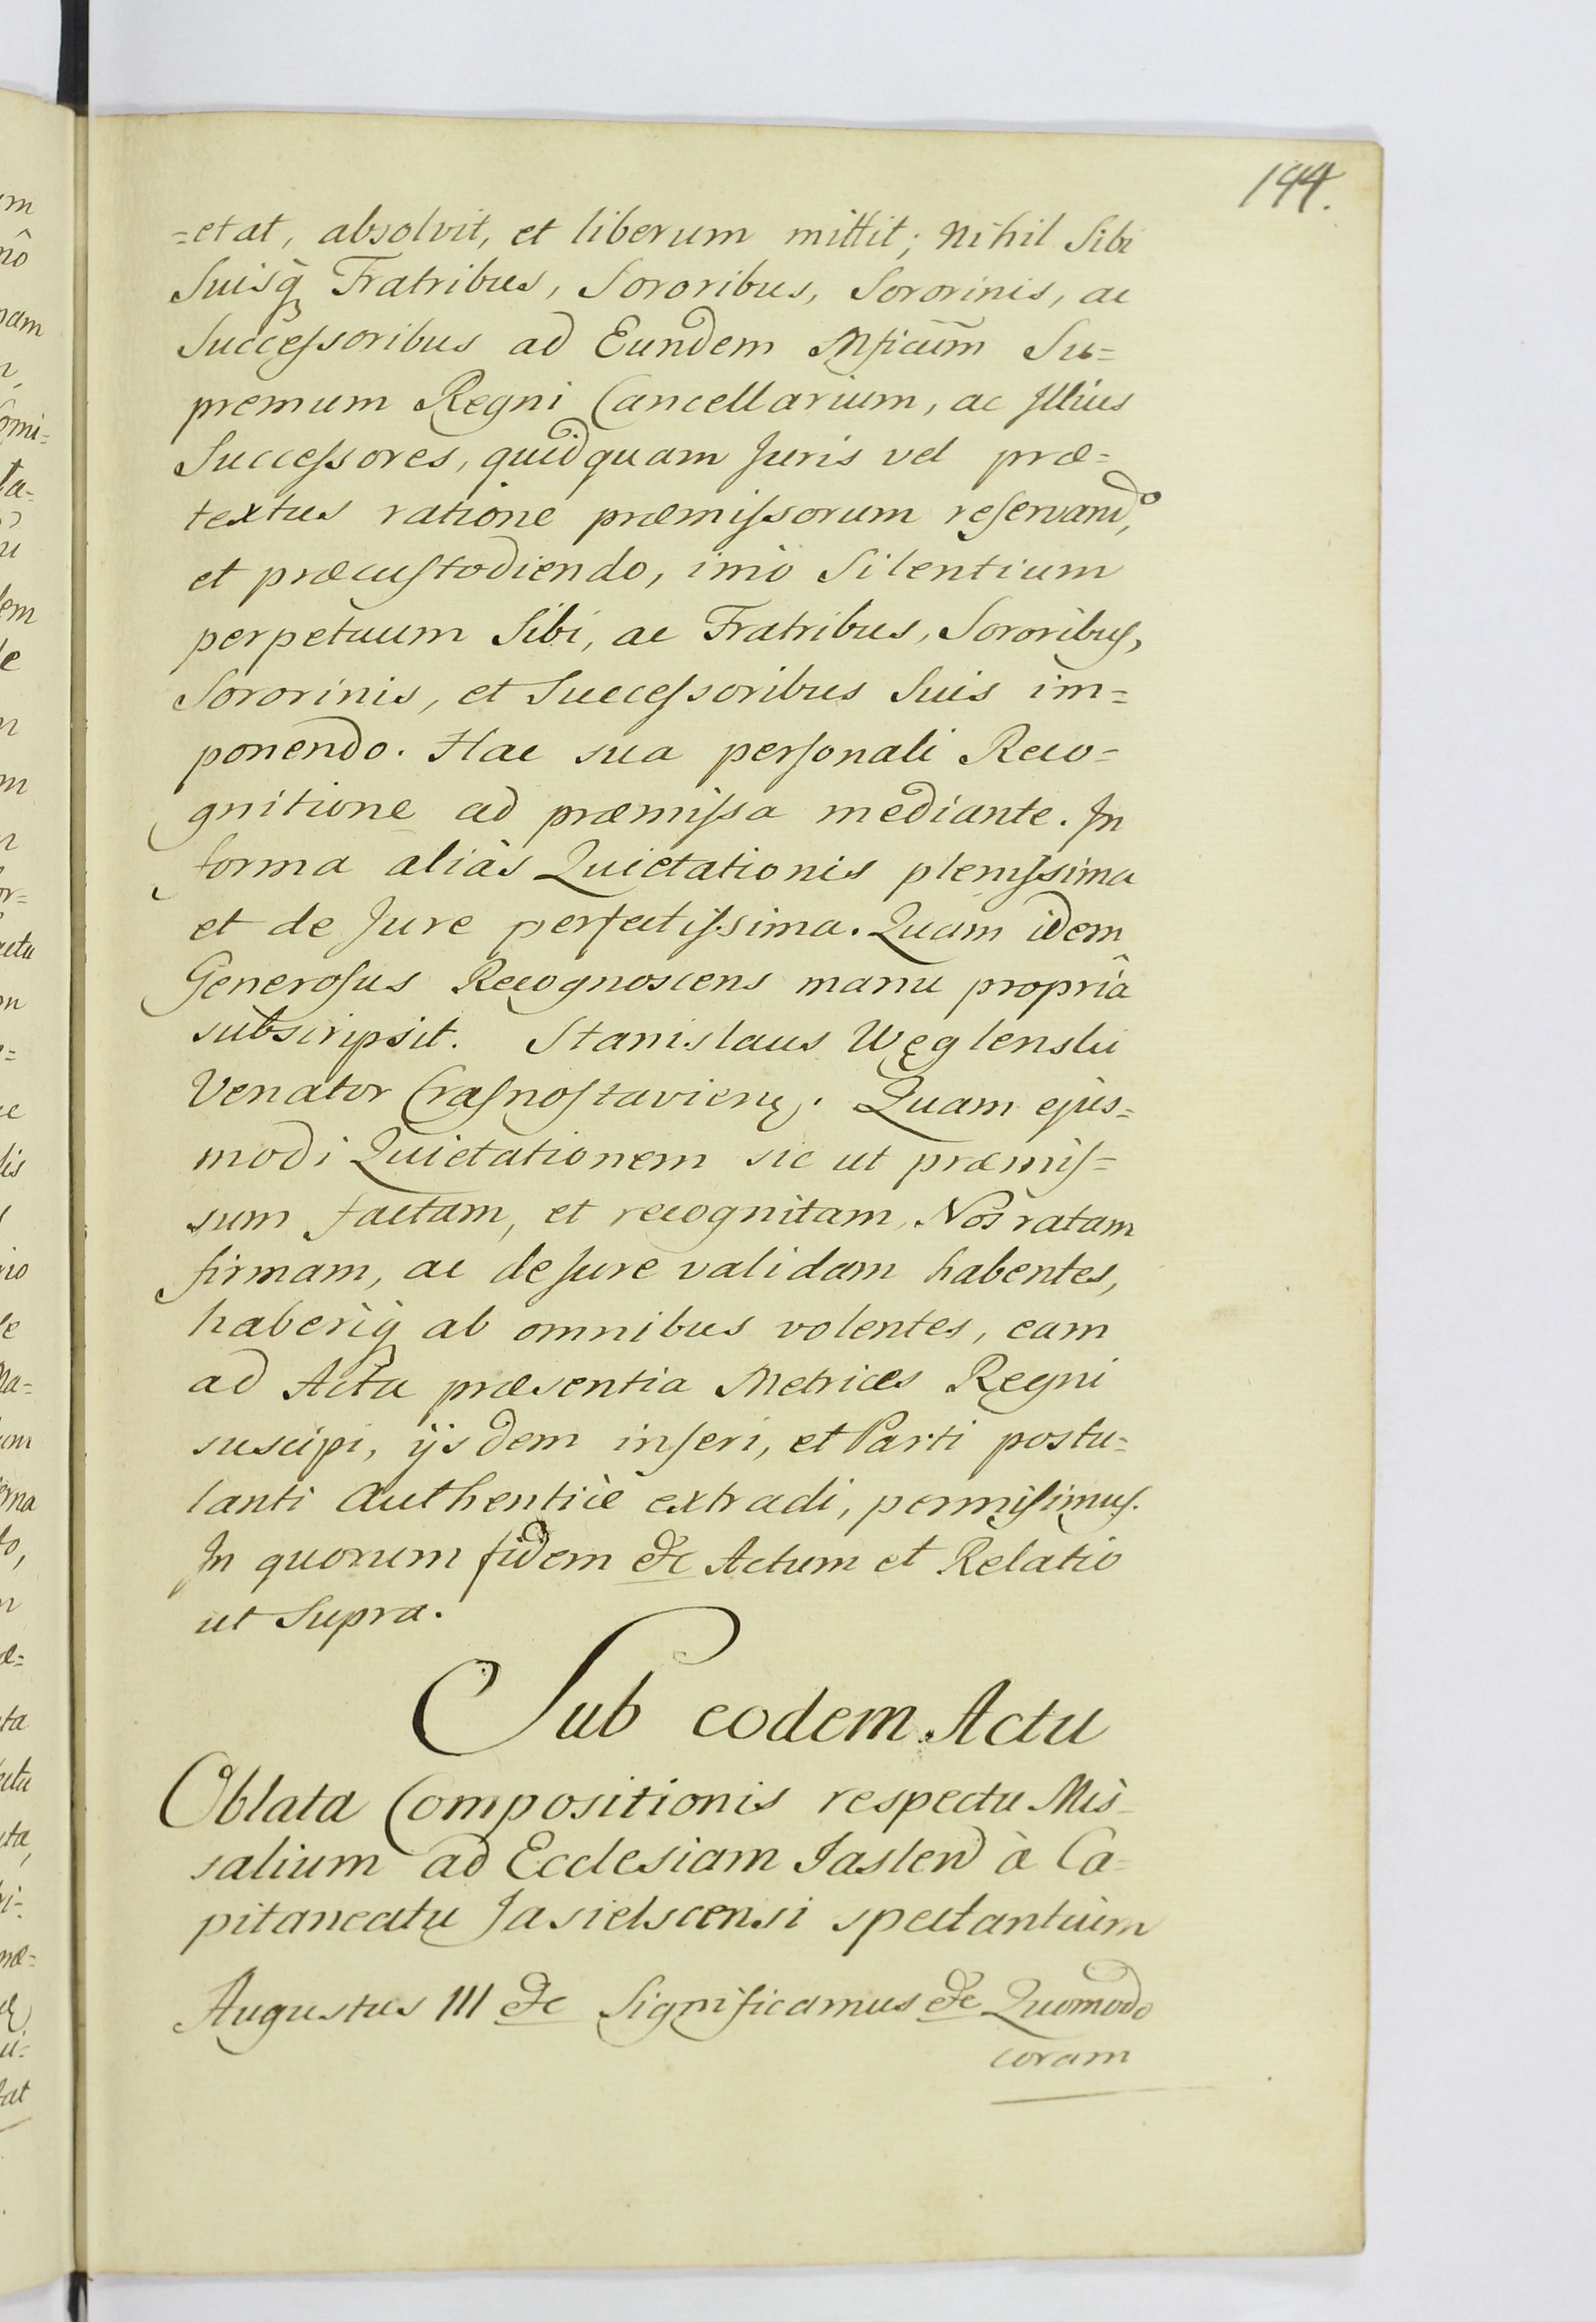 144.
=etat, absolvit, et liberum mittit; Nihil Sibi
Suisq̀ Fratribus, Sororibus, Sororinis, ac
Succeſsoribus ad Eundem Mficum̃ Su=
premum Regni Cancellarium, ac Illius
Succeſsores, quidquam Juris vel præ=
textus ratione præmiſsorum reſervando,
et præcuſtodiendo, imò Silentium
perpetuum Sibi, ac Fratribus, Sororibuſ,
Sororinis, et Succeſsoribus Suis im=
ponendo. Hac sua perſonali Reco=
gnitione ad præmiſsa mediante. In
forma aliàs Quietationis pleniſsima
et de Jure perfectiſsima. Quam idem
Generoſus Recognoscens manu propriâ
subscripsit. Stanislaus Węglenski
Venator Craſnoſtavienſ. Quam ejus=
modi Quietationem sic ut præmiſ=
sum factam, et recognitam, Nos ratam
firmam, ac de Jure validam habentes,
haberiq̀ ab omnibus volentes, eam
ad Acta præsentia Metrices Regni
suscipi, ijsdem inſeri, et Parti postu=
lanti Authenticè extradi, permiſimuſ.
In quorum fidem &c Actum et Relatio
ut Supra.
Sub eodem Actu
Oblata Compositionis respectu Mis=
salium ad Ecclesiam Jaslen̄ à Ca=
pitaneatu Jasielscensi spectantium
Augustus III &c Significamus &c Quomodo
coram